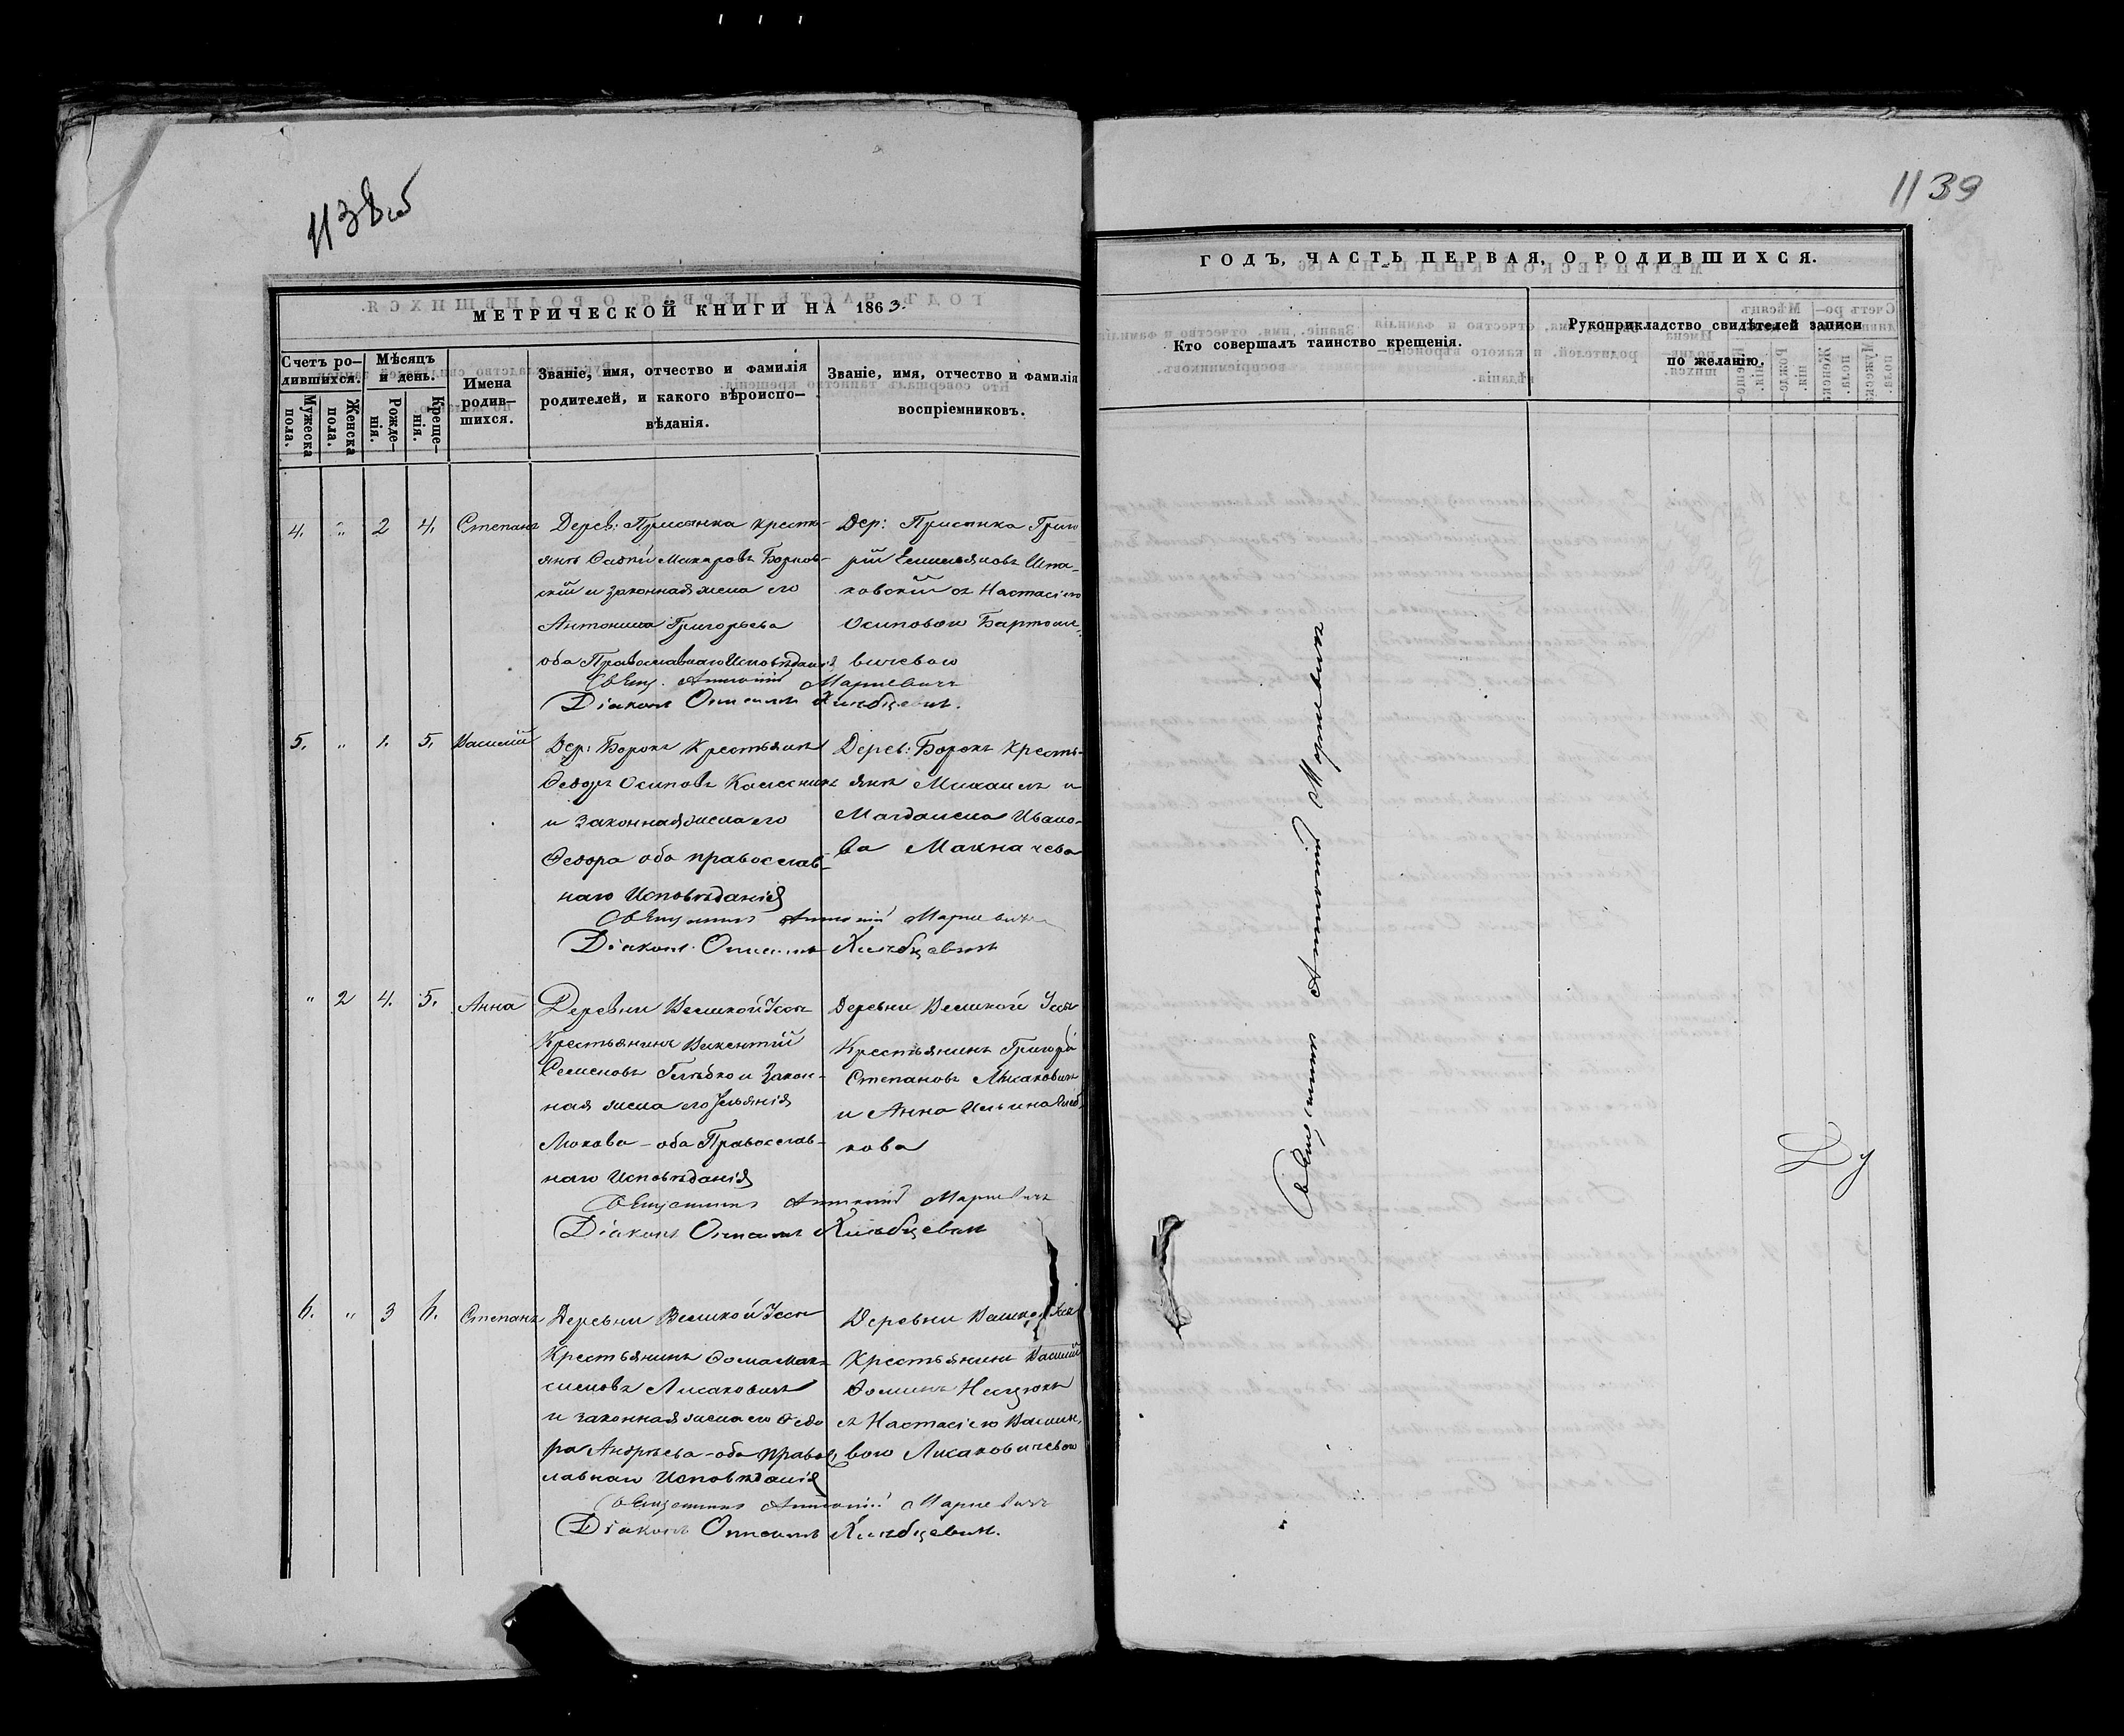 1138об
1139
МЕТРИЧЕСКОЙ КНИГИ НА 1863.
Счетъ ро-
дившихся.
Мужеска
пола.
Женска
пола.
Мѣсяцъ
и день.
Рожде-
нія.
Креще-
нія.
Имена
родив-
шихся.
Званіе, имя, отчество и фамилія
родителей, и какого вѣроиспо-
вѣданія.
Званіе, имя, отчество и фамилія
воспріемниковъ.
4. " 2 4. Степанъ
Дерев: Присынка крестъ-
янъ Макаровъ Борков-
скій и законная жена его
Антонина Григорьева
оба Православнаго Исповѣданія
Дер: Присынка Григо
рій Емельяновъ
ковскій съ Настасіею
Осиповою
вичевою
Свящ. Антоній Марцевичъ
Діаконъ Хлѣбцевичъ.
5. " 1. 5. Василій
Дер: Борокъ Крестьянинъ
Федоръ Осиповъ Колесникъ
и законная жена его
Федора оба православ-
наго Исповѣданія
Дерев: Борокъ Кресть-
янъ Михаилъ и
Магдалена Ивано-
ва Махначева
Священникъ Антоній Марцевичъ
Діаконъ Хлѣбцевичъ
" 2 4. 5. Анна
Деревни Великой Усы
Крестьянинъ Викентій
Семеновъ Глѣбко и Закон-
ная жена его Ульянія
Люкова - оба Православ-
наго Исповѣданія
Деревни Великой Усы
Крестьянинъ Григорій
Степановъ Лисаковичъ
и Анна Ильина Глѣб-
кова
Священникъ Антоній Марцевичъ
Діаконъ Хлѣбцевичъ
6. " 3 6. Степанъ
Деревни Великой Усы
Крестьянинъ Фома Мак-
симовъ Лисаковичъ
и законная жена его Федо
ра Андреева - оба Правос
лавнаго Исповѣданія
Деревни Великой Усы
Крестьянинъ Василій
Фоминъ
съ Настасіею
вою Лисаковичевою
Священникъ Антоній Марцевичъ
Діаконъ Хлѣбцевичъ.
ГОДЪ, ЧАСТЬ ПЕРВАЯ, О РОДИВШИХСЯ.
Кто совершалъ таинство крещенія.
Рукоприкладство свидѣтелей записи
по желанію.
Священникъ Антоній Марцевичъ